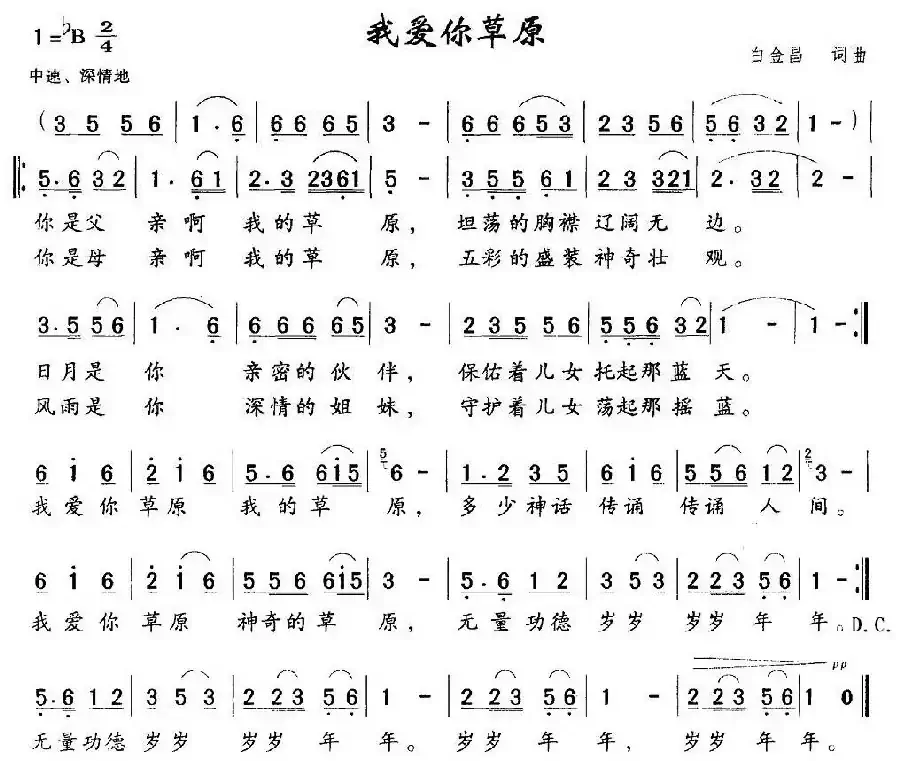 我爱你草原
1=♭B 2/4
白金昌 词曲
中速、深情地
(3 5 5 6 | 1 · 6 | 6 6 6 5 | 3 - | 6 6 6 5 3 | 2 3 5 6 | 5 6 3 2 | 1 - ) |
5 · 6 3 2 | 1 · 6 1 | 2 · 3 2 3 6 1 | 5 - | 3 5 5 6 1 | 2 3 3 2 1 | 2 · 3 2 | 2 - |
你是父 亲啊 我的草 原, 坦荡的胸襟辽阔无 边。
你是母 亲啊 我的草 原, 五彩的盛装神奇壮 观。
3 · 5 5 6 | 1 · 6 | 6 6 6 6 5 | 3 - | 2 3 5 5 6 | 5 5 6 3 2 | 1 - | 1 - :|
日月是 你 亲密的伙 伴, 保佑着儿女托起那蓝 天。
风雨是 你 深情的姐 妹, 守护着儿女荡起那摇 蓝。
6 1 6 | 2 1 6 | 5 · 6 6 1 5 | 5 6 - | 1 · 2 3 5 | 6 1 6 | 5 5 6 1 2 | 2 3 - |
我爱你草原 我的草 原, 多少神话 传诵 传诵 人 间。
6 1 6 | 2 1 6 | 5 5 6 6 1 5 | 3 - | 5 · 6 1 2 | 3 5 3 | 2 2 3 5 6 | 1 - :|
我爱你 草原 神奇的草 原, 无量功德 岁岁 岁岁 年 年。D.C.
pp
5 · 6 1 2 | 3 5 3 | 2 2 3 5 6 | 1 - | 2 2 3 5 6 | 1 - | 2 2 3 5 6 | 1 0 ‖
无量功德 岁岁 岁岁 年 年。岁岁 年 年, 岁岁 年 年。